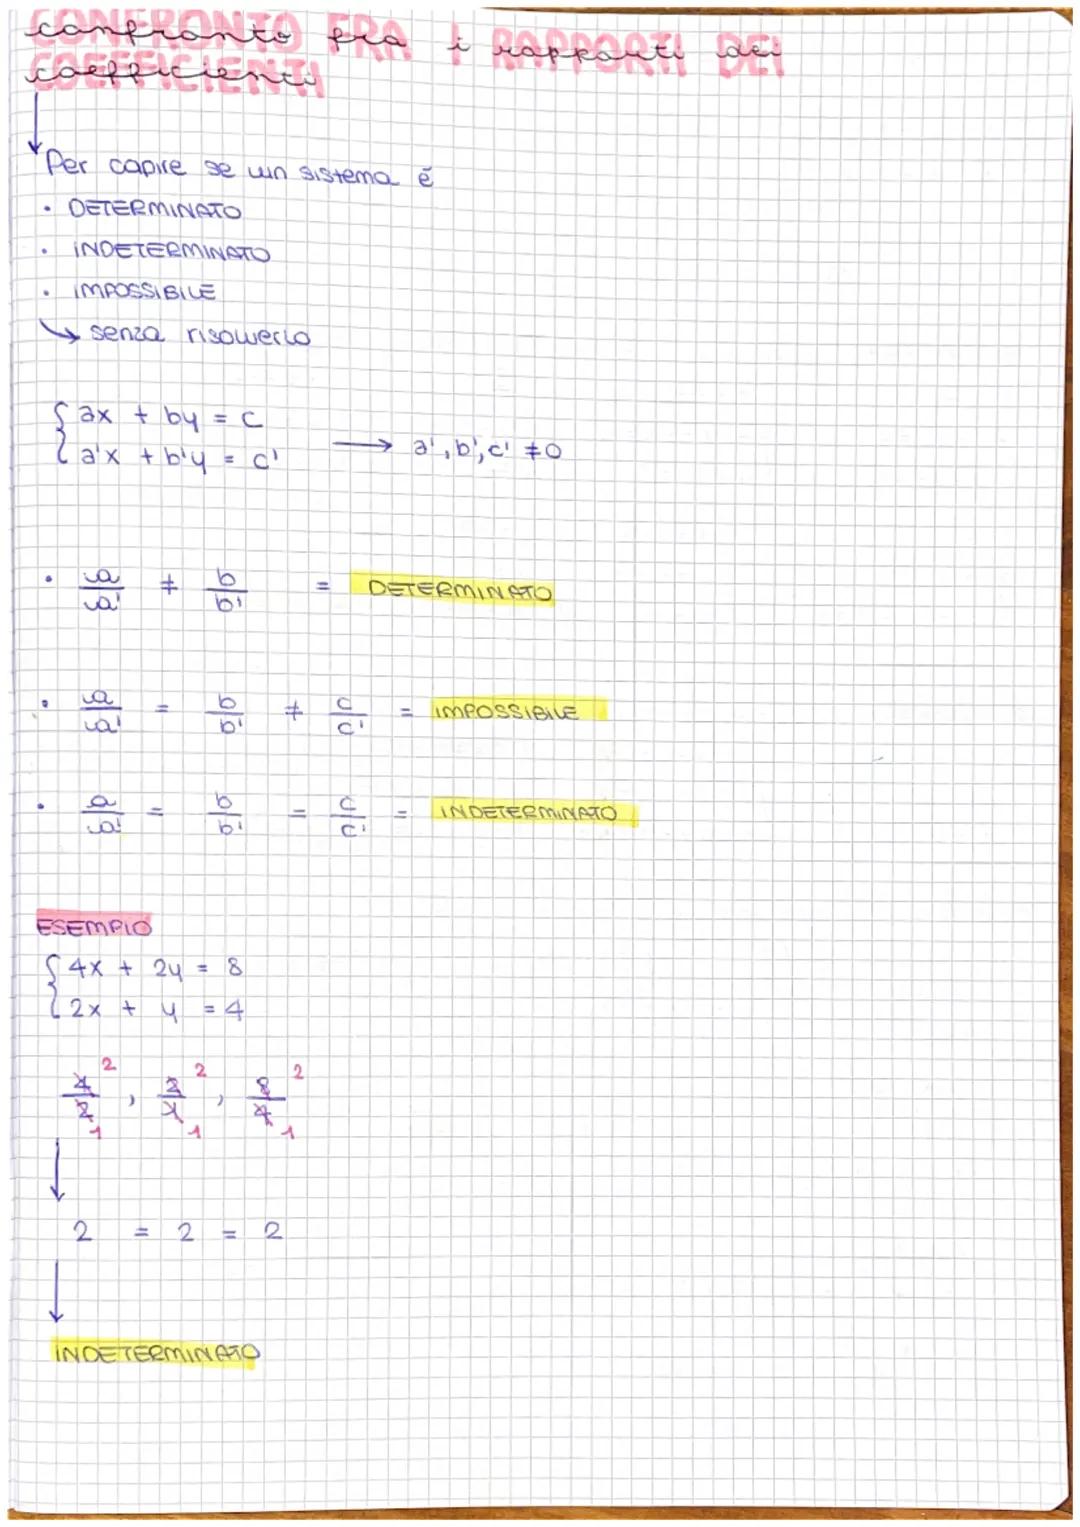 confronto fra i rapporti dei
coefficienti
CONFRONTO FRA I RAPPORTI DEI
COEFFICIENTI
Per capire se un sistema é
• DETERMINATO
• INDETERMINATO
• IMPOSSIBILE
↳ senza risolverlo
{ ax + by = c
{ a'x + b'y = c' → a', b', c' ≠ 0
• a/a' ≠ b/b' = DETERMINATO
• a/a' = b/b' ≠ c/c' = IMPOSSIBILE
• a/a' = b/b' = c/c' = INDETERMINATO
ESEMPIO
{ 4x + 2y = 8
{ 2x + y = 4
4/2 , 2/1 , 8/4
2 2 2
1 1 1
2 = 2 = 2
INDETERMINATO